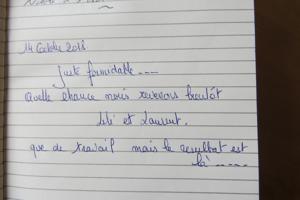 14 Octobre 2018
Juste formidable ....
Quelle chance nous revenons bientôt
Lili et Laurent.
que de travail mais le resultat est
là .....